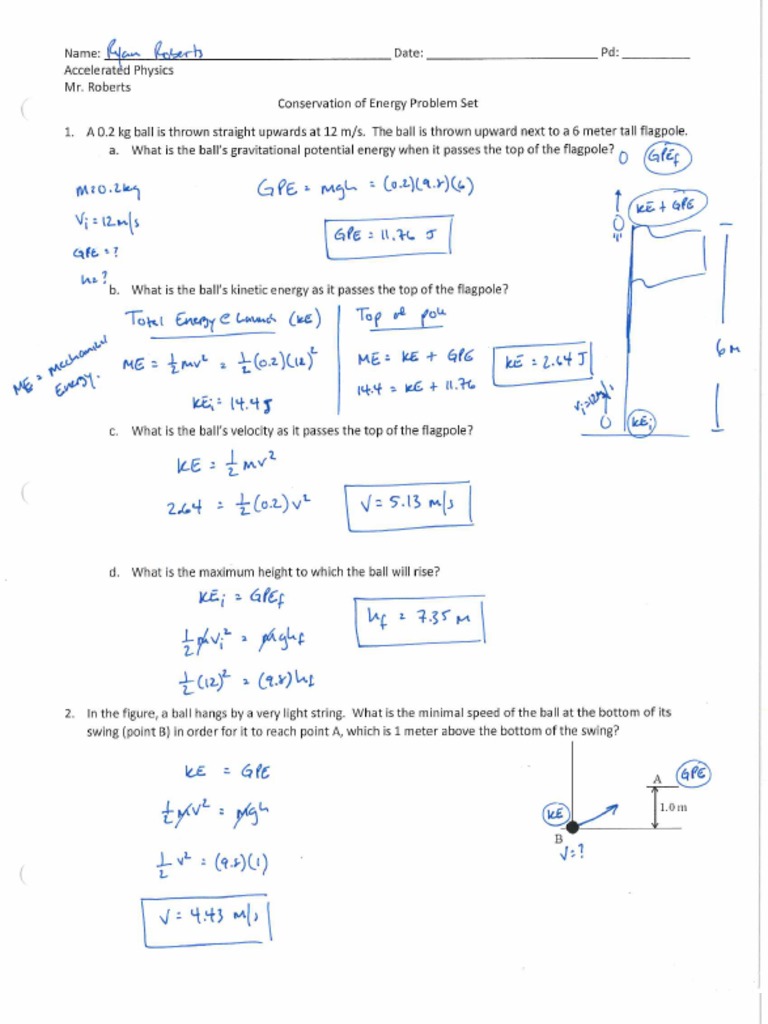 Name: Ryan Roberts Date: Pd:
Accelerated Physics
Mr. Roberts
Conservation of Energy Problem Set
1. A 0.2 kg ball is thrown straight upwards at 12 m/s. The ball is thrown upward next to a 6 meter tall flagpole.
a. What is the ball's gravitational potential energy when it passes the top of the flagpole?
GPEf
m=0.2kg
GPE = mgh = (0.2)(9.8)(6)
KE + GPE
Vi = 12 m/s
GPE = 11.76 J
GPE = ?
h=?
b. What is the ball's kinetic energy as it passes the top of the flagpole?
Total Energy @ Launch (KE)
Top of pole
ME = Mechanical Energy.
ME = 1/2 mv² = 1/2 (0.2)(12)²
ME = KE + GPE
KE = 2.64 J
6m
14.4 = KE + 11.76
KEi = 14.4 J
Vi=12m/s
KEi
c. What is the ball's velocity as it passes the top of the flagpole?
KE = 1/2 mv²
2.64 = 1/2 (0.2) v²
V = 5.13 m/s
d. What is the maximum height to which the ball will rise?
KEi = GPEf
hf = 7.35 m
1/2 mvi² = mghf
1/2 (12)² = (9.8) hf
2. In the figure, a ball hangs by a very light string. What is the minimal speed of the ball at the bottom of its
swing (point B) in order for it to reach point A, which is 1 meter above the bottom of the swing?
KE = GPE
A GPE
1/2 mv² = mgh
KE
1.0 m
B
V=?
1/2 v² = (9.8)(1)
V = 4.43 m/s